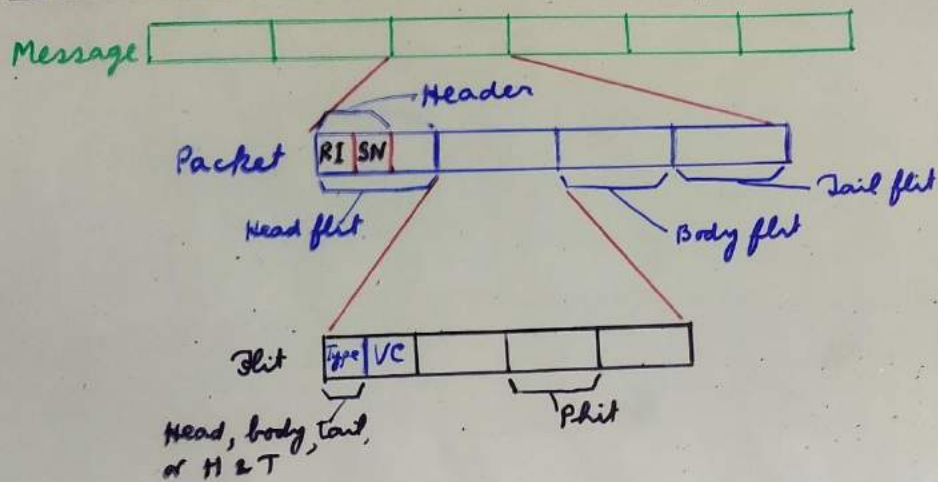 Message
Header
Packet RI SN
Head flit
Body flit
Tail flit
Flit Type VC
Head, body, Tail,
or H & T
Phit